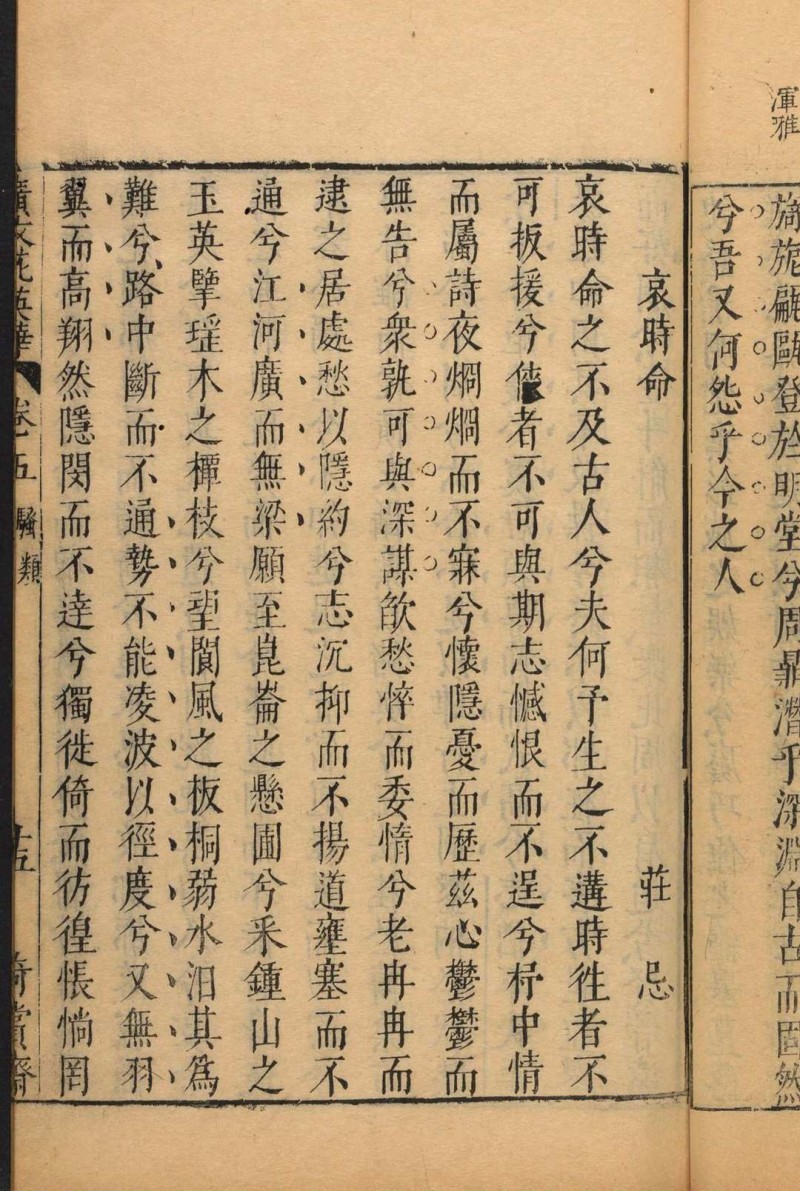 渾雅
旖旎翩甌登於明堂兮周鼎潛乎深淵自古而固然
兮吾又何怨乎今之人
哀時命　莊忌
哀時命之不及古人兮夫何予生之不遘時徃者不
可扳援兮俫者不可與期志憾恨而不逞兮杼中情
而屬詩夜烱烱而不寐兮懷隱憂而歷茲心鬱鬱而
無告兮衆孰可與深謀欿愁悴而委惰兮老冉冉而
逮之居處愁以隱約兮志沉抑而不揚道壅塞而不
通兮江河廣而無梁願至崑崙之懸圃兮釆鍾山之
玉英擥瑶木之橝枝兮望閬風之板桐弱水汨其爲
難兮路中斷而不通勢不能凌波以徑度兮又無羽
翼而高翔然隱閔而不達兮獨徙倚而彷徨悵惝罔
廣文苑英華　卷十五　騷類　十五　奇賞齋